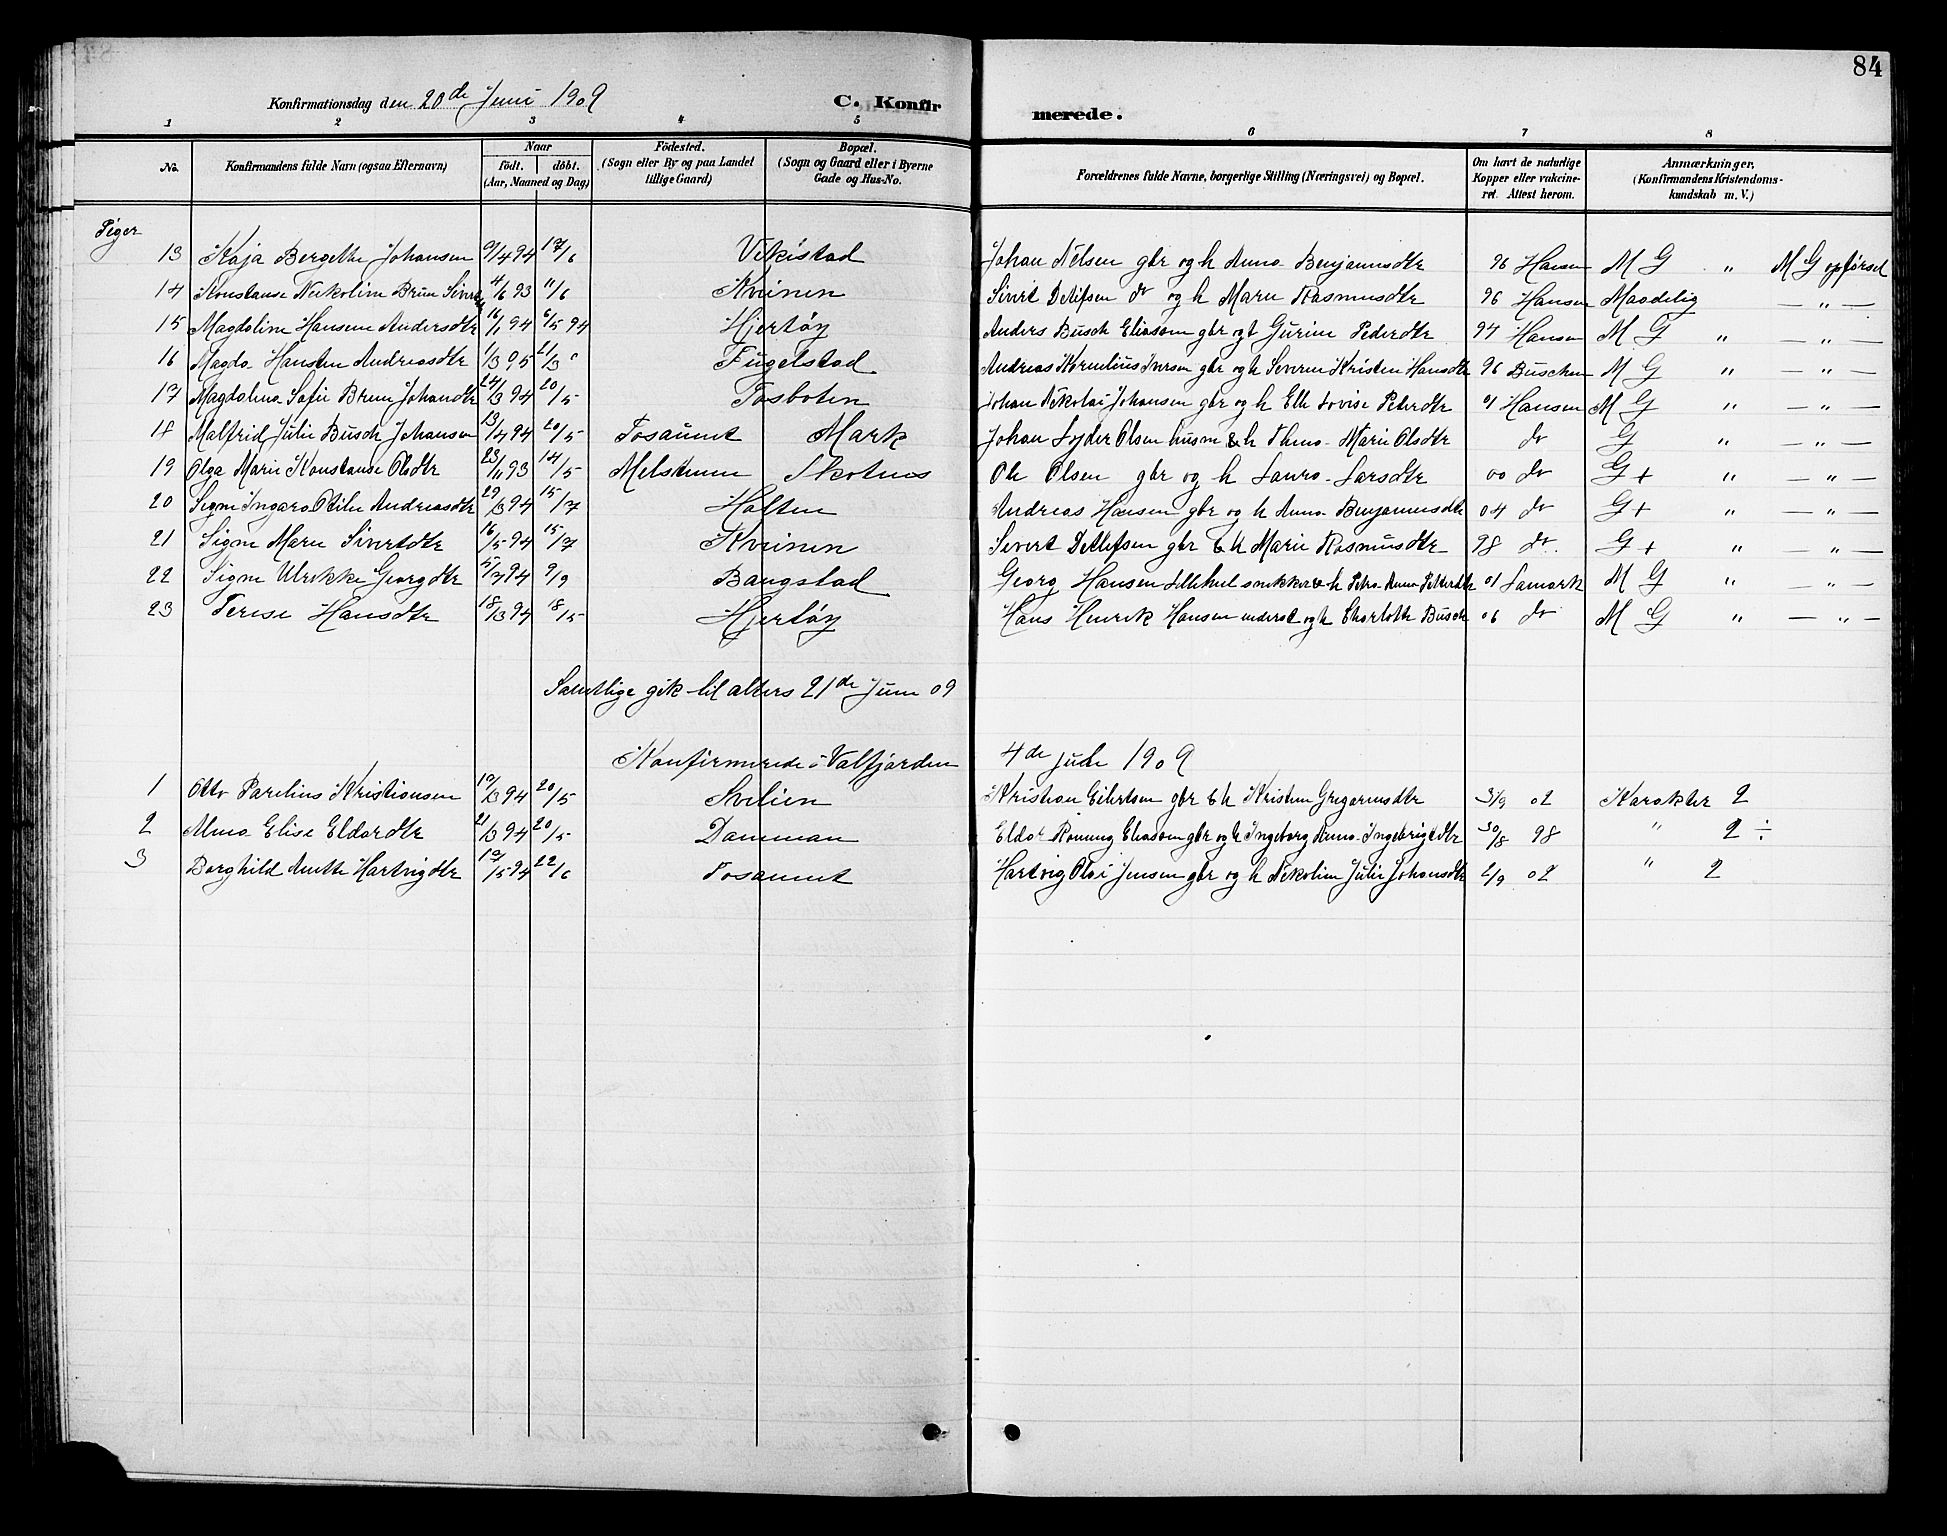 84
Konfirmationsdag den 20de Juni 1909 C. Konfir merede.
1 2 3 4 5 6 7 8
No. Konfirmandens fulde Navn (ogsaa Efternavn) Naar födt. döbt. (Aar, Maaned og Dag) Födested. (Sogn eller By og paa Landet tillige Gaard) Bopæl. (Sogn og Gaard eller i Byerne Gade og Hus-No. Forældrenes fulde Navne, borgerlige Stilling (Næringsvei) og Bopæl. Om havt de naturlige Kopper eller vakcineret. Attest herom. Anmærkninger, (Konfirmandens Kristendomskundskab m. V.)
Piger
13 Kaja Bergethe Johansen 9/4 94 17/6 Vikestad Johan Nelsen gbr og h Anna Benjaminsdtr 96 Hansen M G " M G opførsel
14 Konstanse Nikoline Brun Sivertsdtr 4/6 93 11/6 Kveinen Sivert Detlefsen do og h Marie Rasmusdtr 96 Hansen Maadelig — " —
15 Magdaline Hansine Andersdtr 16/1 94 6/5 94 Hjertøy Anders Busch Eliasson gbr og h Gurine Pederdtr 97 Hansen M G " — " —
16 Magda Hansine Andreasdtr 1/3 95 21/3 Fugelstad Andreas Kornelius Iversen gbr og h Severine Kristine Hansdtr 96 Buschen M G " — " —
17 Magdalena Sofie Brun Johandtr 24/3 94 20/5 Tosboten Johan Nikolai Johansen gbr og h Elle Lovise Peterdtr 01 Hansen M G " — " —
18 Malfrid Julie Busch Johansen 13/4 94 20/5 Tosaunet Mark Johan Lyder Olsen husm & h Thina Marie Olsdtr do G " — " —
19 Olga Marie Konstanse Olsdtr 23/11 93 14/5 Skotnes Ole Olsen gbr og h Laura Larsdtr 00 do G + " — " —
20 Signe Ingara Otilie Andreasdtr 29/3 94 15/7 Holten Andreas Hansen gbr og h Anna Benjaminsdtr 04 do G + " — " —
21 Signe Marie Sivertdtr 16/5 94 15/7 Kveinen Sivert Detlefsen gbr & h Marie Rasmusdtr 98 do G + " — " —
22 Signe Ulrikke Georgdtr 5/7 94 9/9 Bangstad Georg Hansen Lillehul snikker & h Petra Anna Petterdtr 01 Lamark M G " — " —
23 Terese Hansdtr 18/3 94 18/5 Hjertøy Hans Henrik Hansen inderst og h Charlotte Busch 06 do M G " — " —
Samtlige gik til alters 21de Juni 09
Konfirmerede i Velfjorden 4de Juli 1909
1 Otto Parelius Kristiansen 10/3 94 20/5 Svelien Kristian Eilertsen gbr & h Kristine Gregoriusdtr 3/9 02 Karakter 2
2 Alma Elise Eldardtr 21/3 94 20/5 Damman Eldar Rønning Eliasson gbr og h Ingeborg Anna Ingebrigtdtr 30/8 98 " 2 ÷
3 Borghild Anette Hartvigdtr 10/5 94 22/6 Tosaunet Hartvig Olai Jensen gbr og h Nikoline Julie Johansdtr 2/9 02 " 2